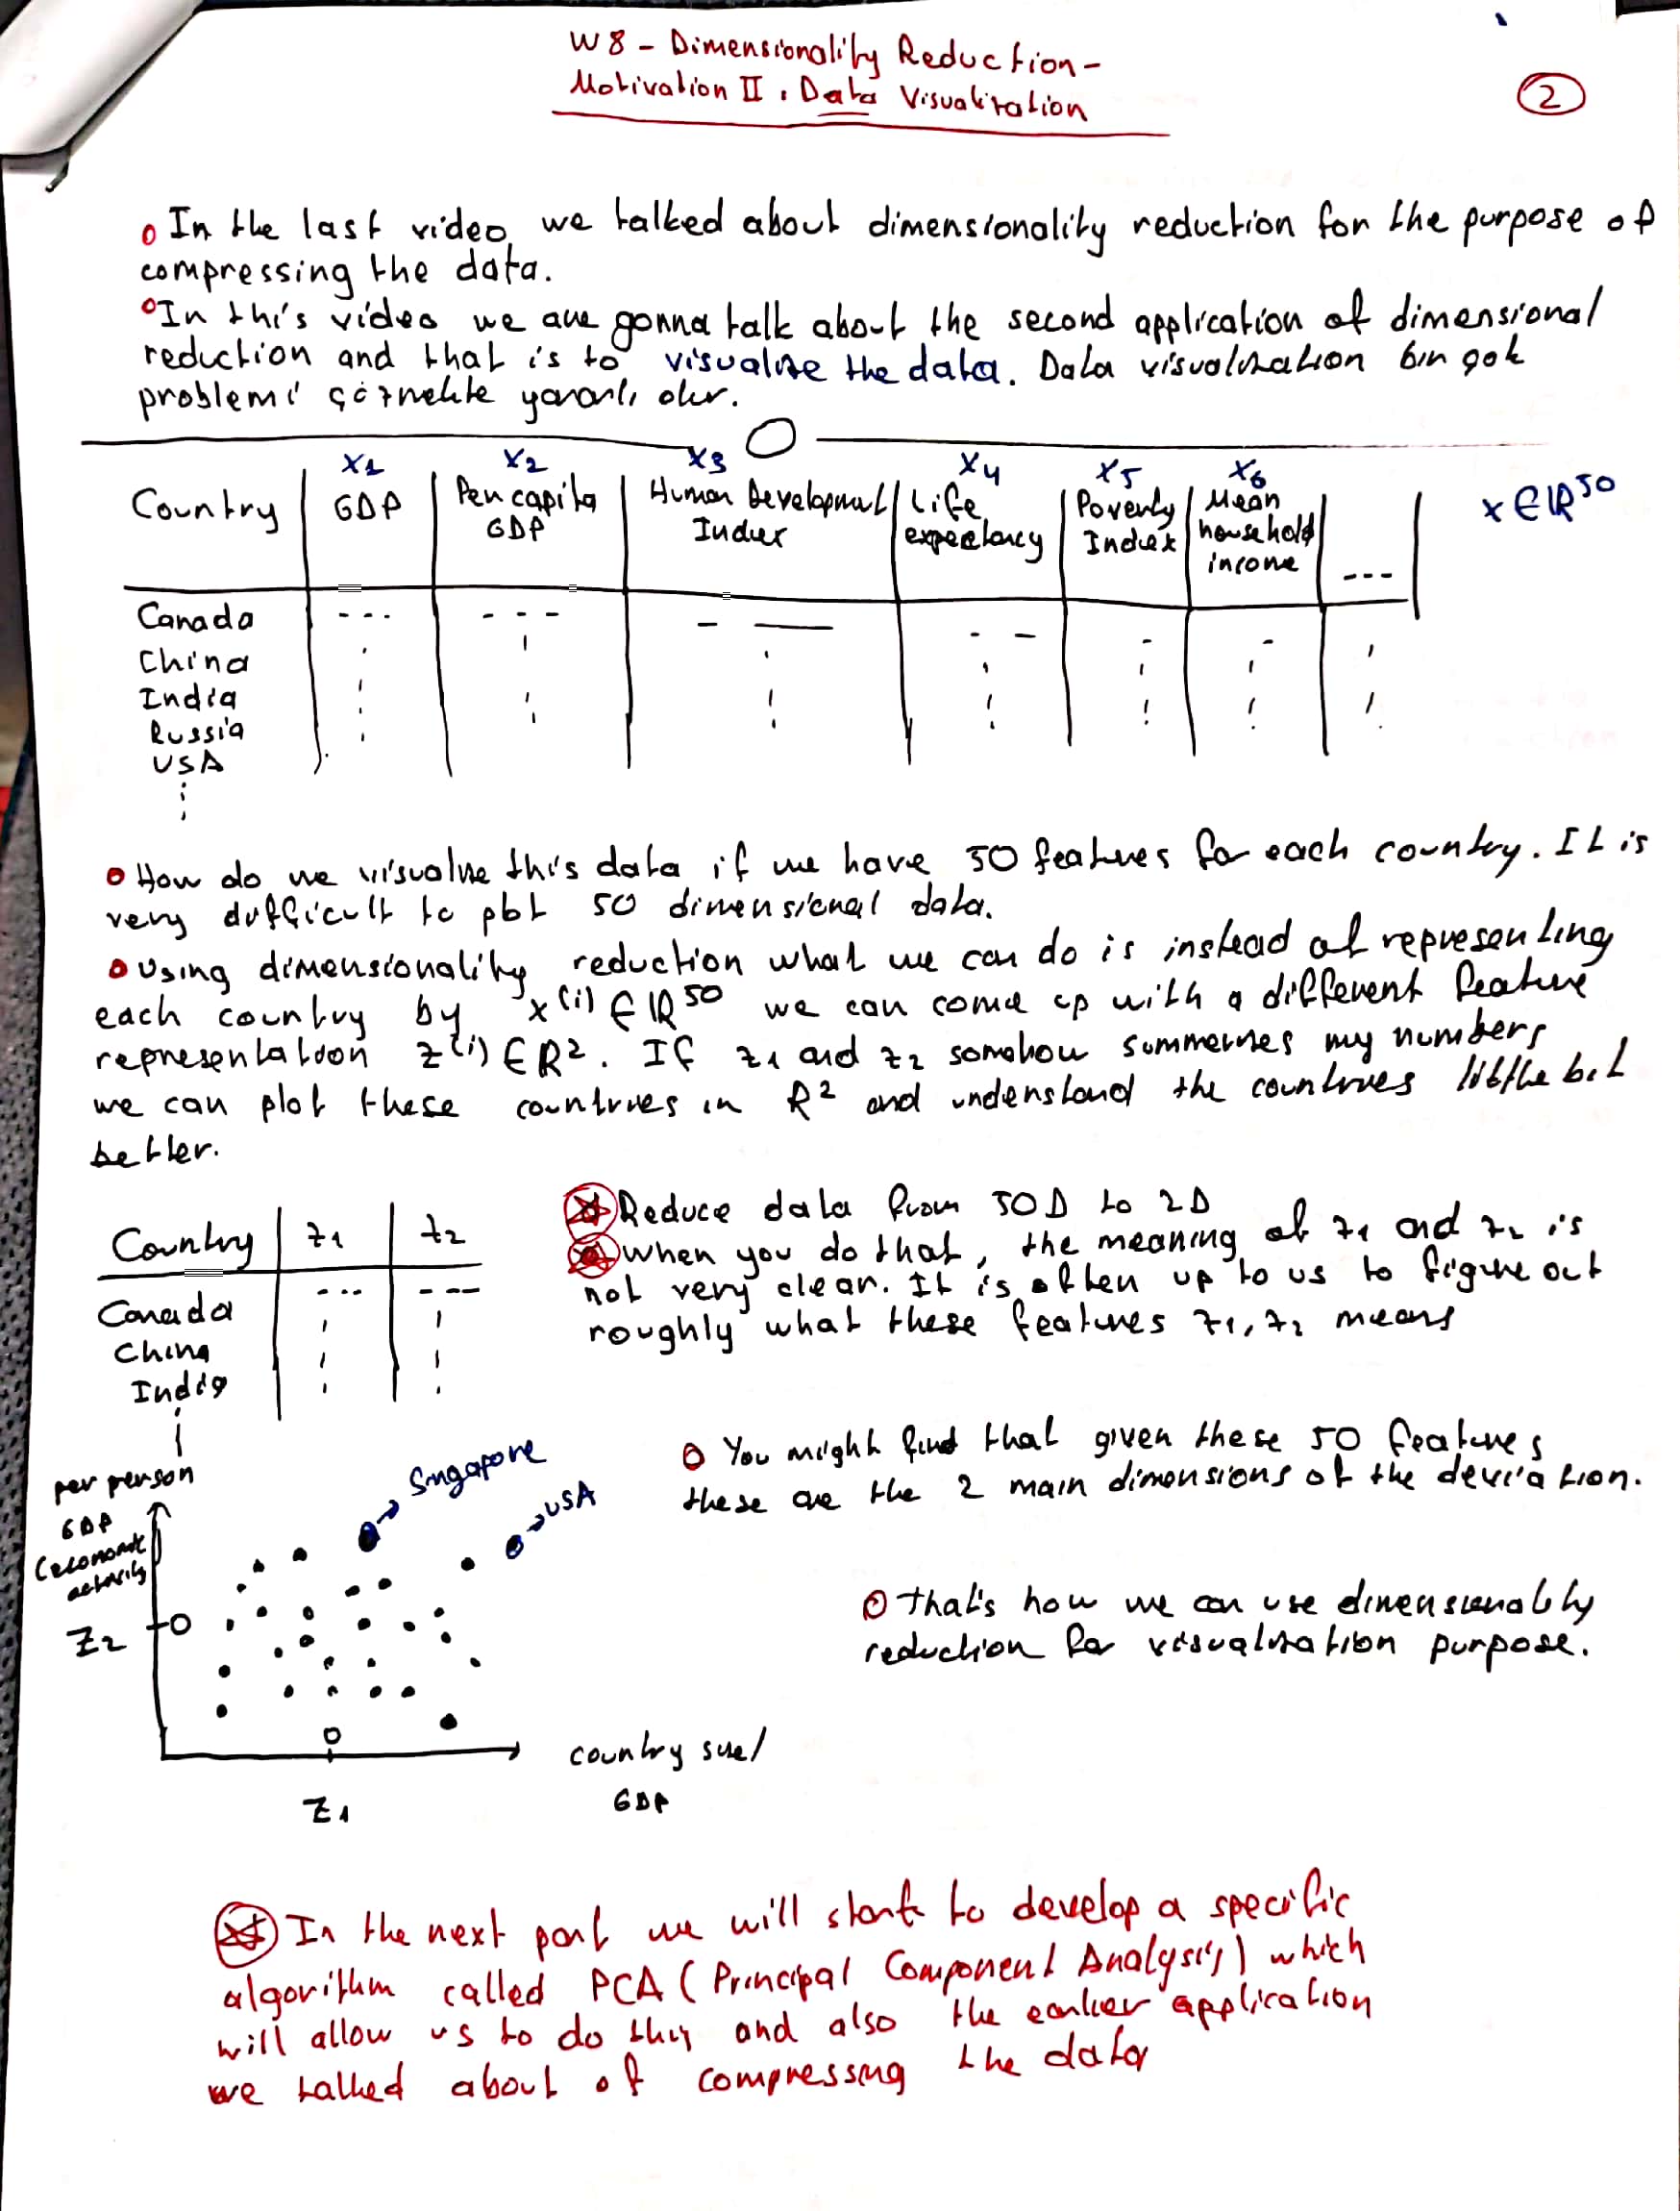 W8 - Dimensionality Reduction -
Motivation II : Data Visualization
2
In the last video, we talked about dimensionality reduction for the purpose of
compressing the data.
In this video we are gonna talk about the second application of dimensional
reduction and that is to visualize the data. Data visualization bir çok
problemi çözmekte yararlı olur.
x1 x2 x3 x4 x5 x6
Country GDP Per capita GDP Human Development Index Life expectancy Poverty Index Mean household income ---
x ∈ ℝ^50
Canada
China
India
Russia
USA
How do we visualize this data if we have 50 features for each country. It is
very difficult to plot 50 dimensional data.
Using dimensionality reduction what we can do is instead of representing
each country by x^(i) ∈ ℝ^50 we can come up with a different feature
representation z^(i) ∈ R^2. If z1 and z2 somehow summerizes my numbers
we can plot these countries in R^2 and understand the countries little bit
better.
Country z1 z2
Canada
China
India
Reduce data from 50D to 2D
When you do that, the meaning of z1 and z2 is
not very clear. It is often up to us to figure out
roughly what these features z1, z2 means
You might find that given these 50 features
these are the 2 main dimensions of the deviation.
per person
GDP
(economic
activity
Singapore
USA
z2
0
0
z1
country size/
GDP
That's how we can use dimensionality
reduction for visualization purpose.
In the next part we will start to develop a specific
algorithm called PCA (Principal Component Analysis) which
will allow us to do this and also the earlier application
we talked about of compressing the data